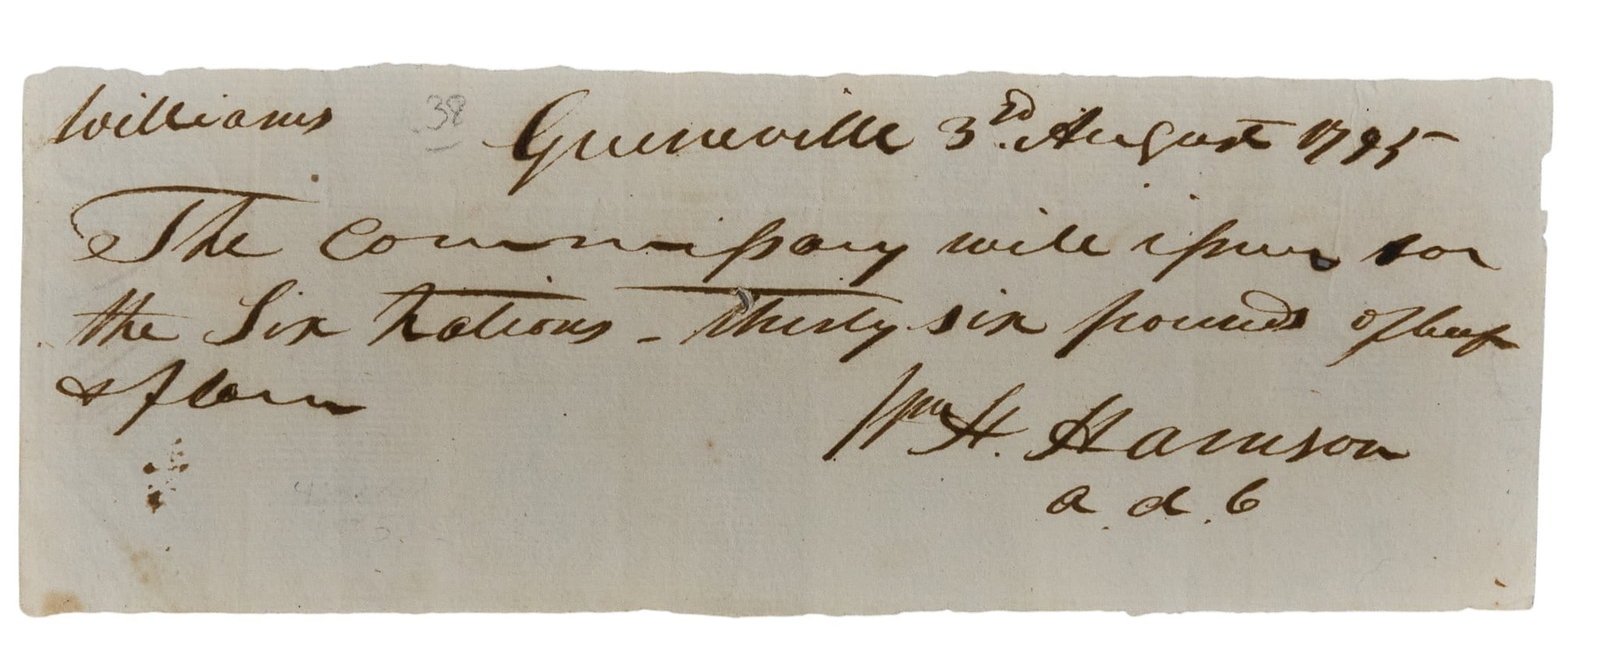 Williams 38 Greeneville 3rd. August 1795
The Commissary will issue for
the Six Nations - Thirty six pounds of beef
& flour
Wm H. Harrison
a. d. C